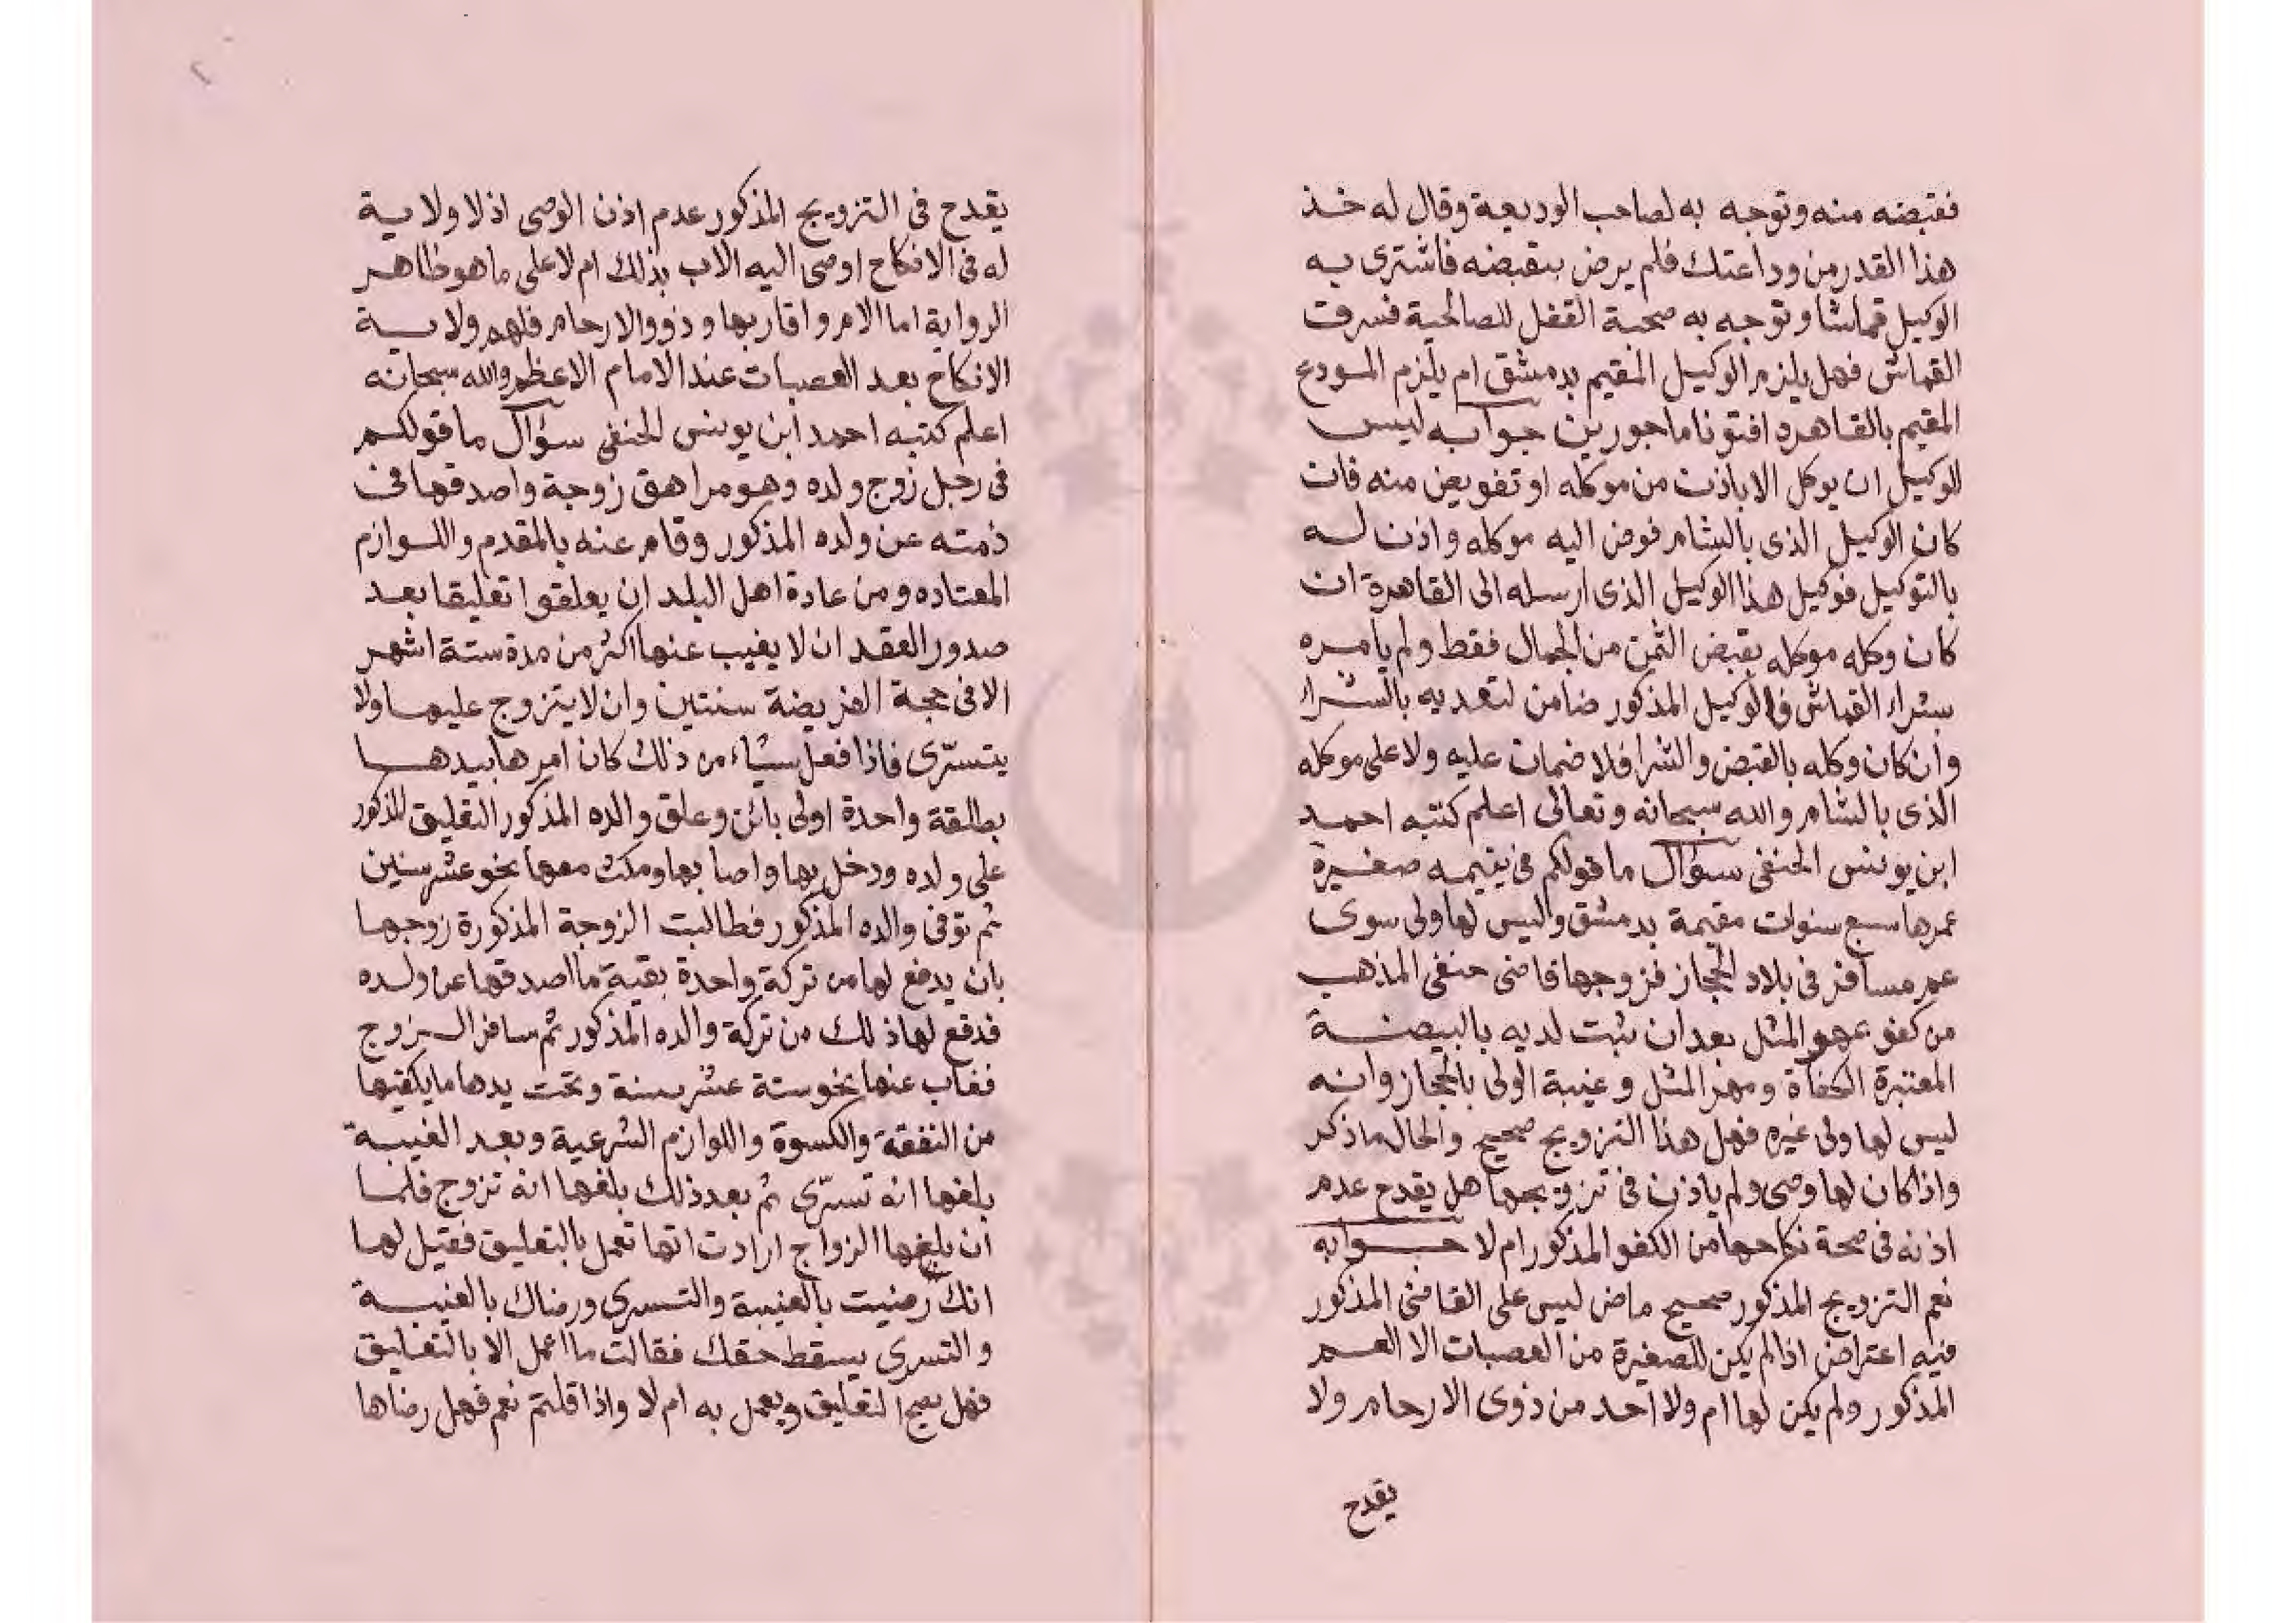 فقبضه منه وتوجه به لصاحب الوديعة وقال له خذ
هذا القدر من وداعتك فلم يرض بقبضه فاشترى به
الوكيل قماشا وتوجه به صحبة القفل للصالحية فسرقت
القماش فهل يلزم الوكيل المقيم بدمشق ام يلزم المودع
المقيم بالقاهره افتونا ماجورين جوابه ليس
للوكيل ان يوكل الا باذن من موكله او تفويض منه فان
كان الوكيل الذى بالشام فوض اليه موكله واذن له
بالتوكيل فوكيل هذا الوكيل الذى ارسله الى القاهرة ان
كان وكله موكله بقبض الثمن من الجمال فقط ولم يامره
بشراء القماش فالوكيل المذكور ضامن لتعديه بالشراء
وان كان وكله بالقبض والشرا فلا ضمان عليه ولا على موكله
الذى بالشام والله سبحانه وتعالى اعلم كتبه احمد
ابن يونس الحنفى سؤال ما قولكم فى يتيمه صغيرة
عمرها سبع سنوات مقيمة بدمشق وليس لها ولى سوى
عم مسافر فى بلاد الحجاز فزوجها قاضى حنفى المذهب
من كفو بمهر المثل بعد ان ثبت لديه بالبينة
المعتبرة الكفاة ومهر المثل وغيبة الولى بالحجاز وانه
ليس لها ولى غيره فهل هذا التزويج صحيح والحال ما ذكر
واذا كان لها وصى ولم ياذن فى تزويجها هل يقدح عدم
اذنه فى صحة نكاحها من الكفو المذكور ام لا جوابه
نعم التزويج المذكور صحيح ماض ليس على القاضى المذكور
فيه اعتراض اذا لم يكن للصغيرة من العصبات الا العم
المذكور ولم يكن لها ام ولا احد من ذوى الارحام ولا
يقدح
يقدح فى التزويج المذكور عدم اذن الوصى اذ لا ولاية
له فى الانكاح اوصى اليه الاب بذلك ام لا على ما هو ظاهر
الرواية اما الام واقاربها وذووا الارحام فلهم ولاية
الانكاح بعد العصبات عند الامام الاعظم والله سبحانه
اعلم كتبه احمد ابن يونس الحنفى سؤال ما قولكم
فى رجل زوج ولده وهو مراهق زوجة واصدقها فى
ذمته عن ولده المذكور وقام عنه بالمقدم واللوازم
المعتاده ومن عادة اهل البلد ان يعلقوا تعليقا بعد
صدور العقد ان لا يغيب عنها اكثر من مدة ستة اشهر
الا فى حجة الفريضة سنتين وان لا يتزوج عليها ولا
يتسرّى فاذا فعل شياء من ذلك كان امرها بيدها
بطلقة واحدة اولى بائن وعلق والده المذكور التعليق المذكور
على ولده ودخل بها واصابها ومكث معها نحو عشر سنين
ثم توفى والده المذكور فطالبت الزوجة المذكورة زوجها
بان يدفع لها من تركة واحدة بقية ما اصدقها عن ولده
فدفع لها ذلك من تركة والده المذكور ثم سافر الزوج
فغاب عنها نحو ستة عشر سنة وتحت يدها ما يكفيها
من النفقة والكسوة واللوازم الشرعية وبعد الغيبة
بلغها انه تسرّى ثم بعد ذلك بلغها انه تزوج فلما
ان بلغها الزواج ارادت انها تعمل بالتعليق فقيل لها
انك رضيت بالغيبة والتسرى ورضاك بالغيبة
والتسرى يسقط حقك فقالت ما اعمل الا بالتعليق
فهل يصح التعليق ويعمل به ام لا واذا قلتم نعم فهل رضاها